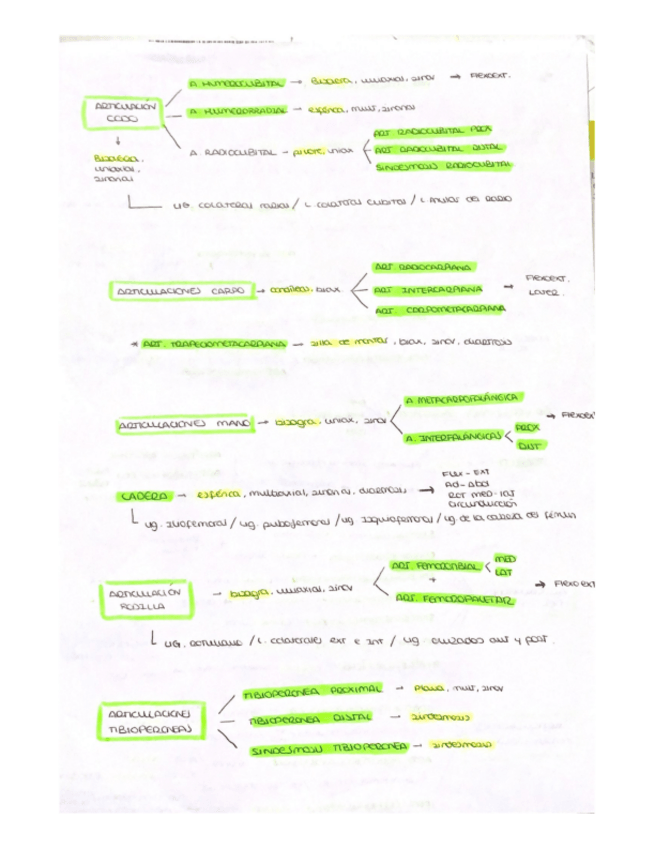 A HUMEROCUBITAL → Bisagra, uniaxial, sinov → FLEXOEXT.
ARTICULACIÓN CODO
A HUMERORRADIAL → esférica, mult, sinovial
A RADIOCUBITAL → pivote, uniax
ART RADIOCUBITAL PROX
ART RADIOCUBITAL DISTAL
SINDESMOSIS RADIOCUBITAL
Bisagra, uniaxial, sinovial
LIG. COLATERAL radial / L. colateral cubital / L. anular del radio
ART RADIOCARPIANA
ARTICULACIONES CARPO → condílea, biax
ART INTERCARPIANA → FLEXOEXT. LATER.
ART. CARPOMETACARPIANA
* ART. TRAPECIOMETACARPIANA → silla de montar, biax, sinov, diartrosis
A METACARPOFALÁNGICA
ARTICULACIONES MANO → bisagra, uniax, sinov → FLEXOEXT
A. INTERFALÁNGICAS
PROX
DIST
FLEX - EXT
Ad - Abd
ROT MED - LAT
circunducción
CADERA → esférica, multiaxial, sinovial, diartrosis →
Lig. iliofemoral / lig. pubofemoral / lig. isquiofemoral / lig. de la cabeza del fémur
ART. FEMOROTIBIAL
MED
LAT
ARTICULACIÓN RODILLA → bisagra, uniaxial, sinov → FLEXO EXT
ART. FEMOROPATELAR
LIG. rotuliano / L. colaterales ext e int / lig. cruzados ant y post.
TIBIOPERONEA PROXIMAL → plana, mult, sinov
ARTICULACIONES TIBIOPERONEAS
TIBIOPERONEA DISTAL → sindesmosis
SINDESMOSIS TIBIOPERONEA → sindesmosis